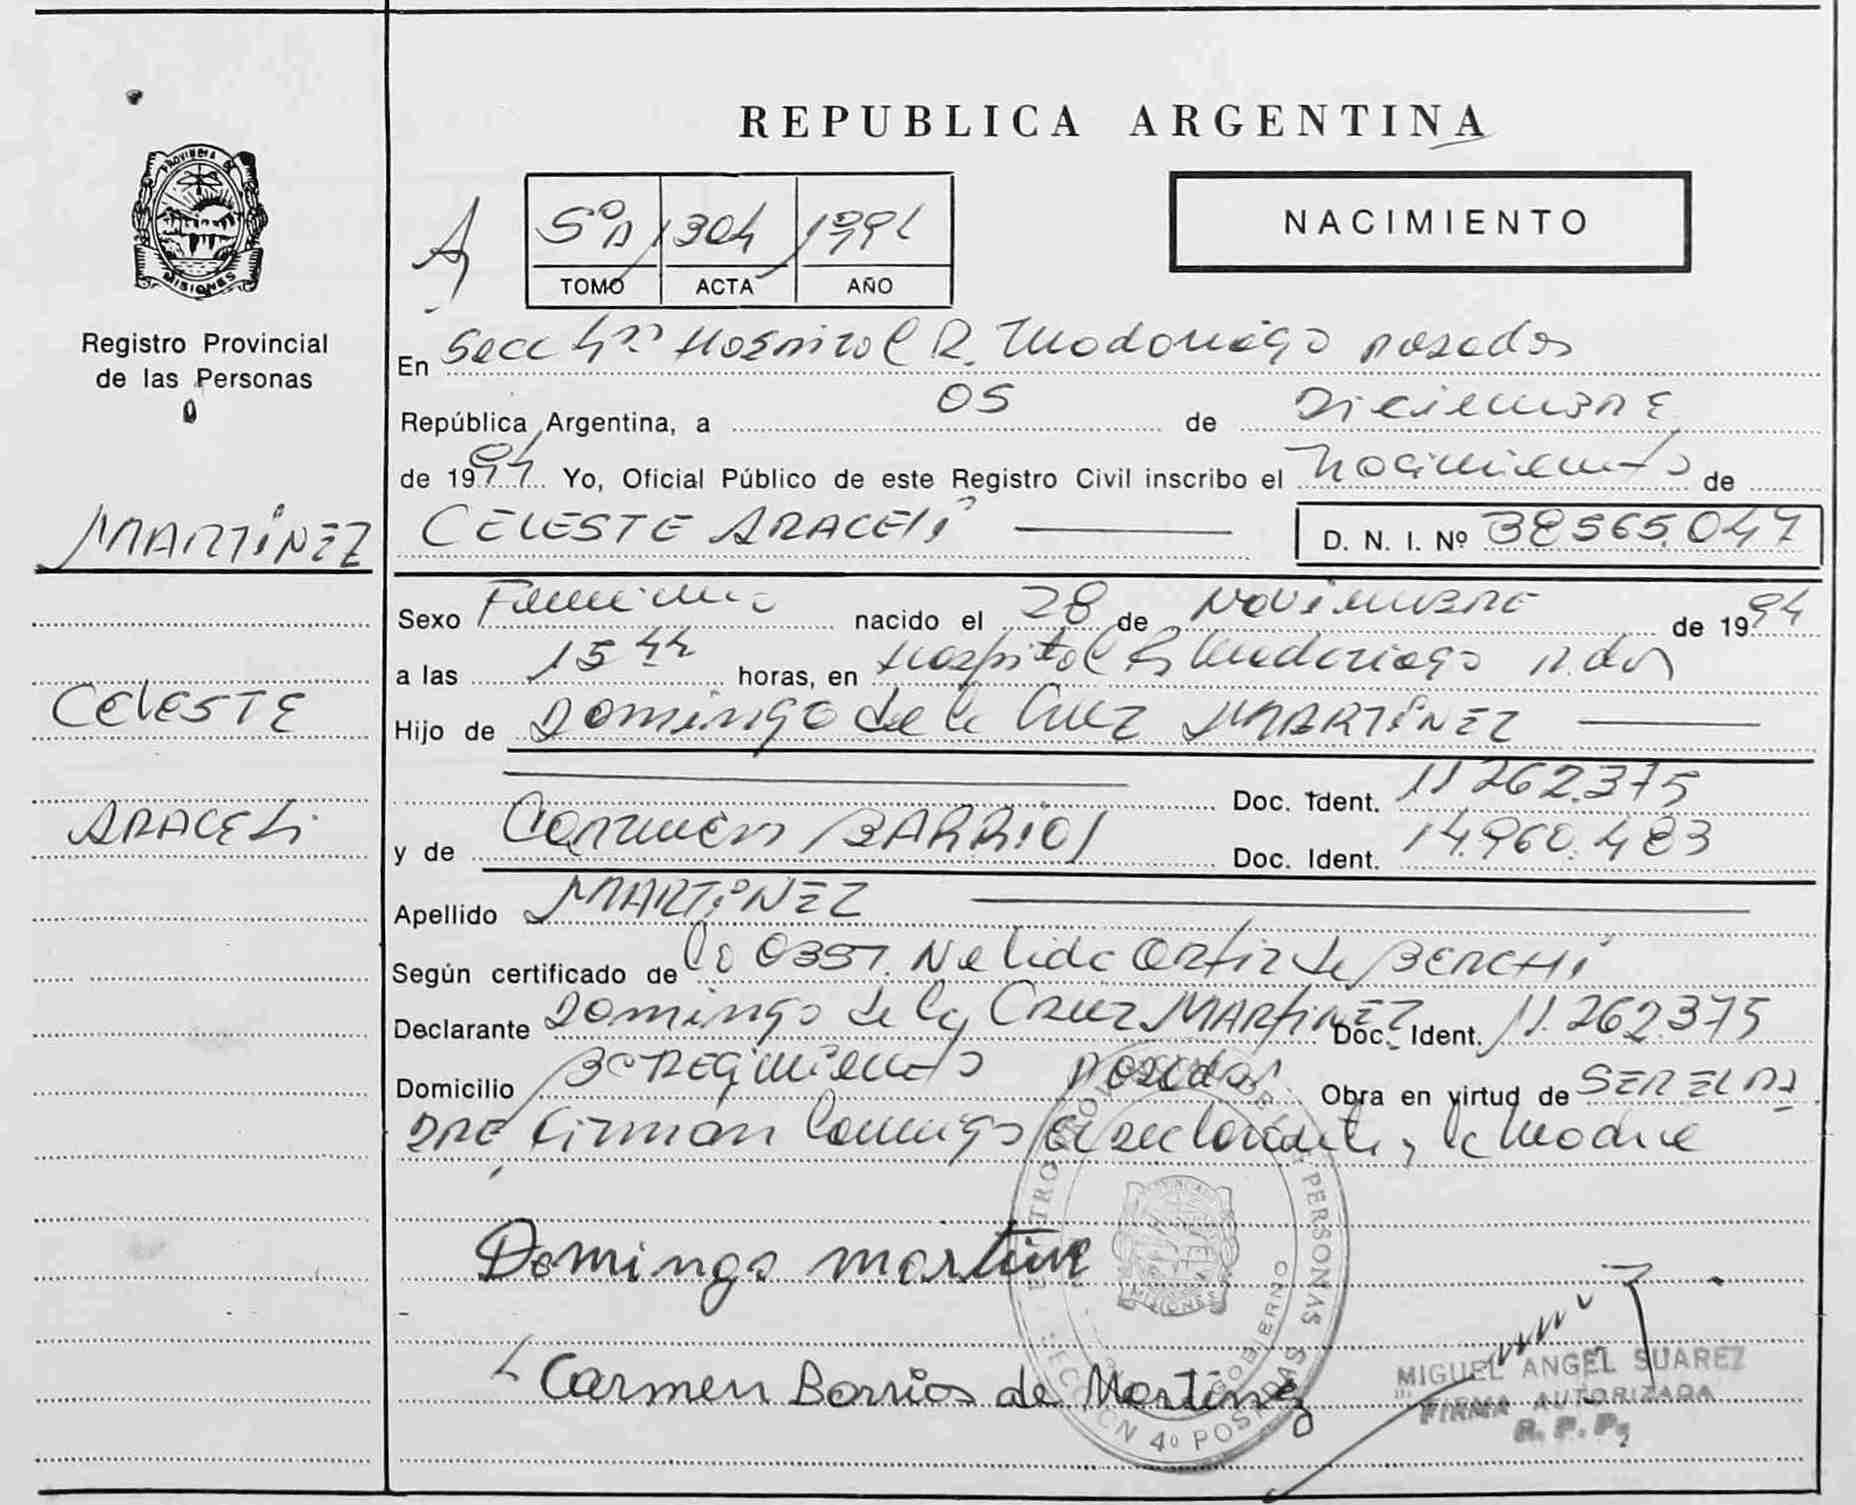 REPUBLICA ARGENTINA
PROVINCIA DE
MISIONES
Registro Provincial
de las Personas
NACIMIENTO
TOMO ACTA AÑO
5º 1304 1994
En Secc 4ta Hospital R. Madariaga Posadas
República Argentina, a 05 de Diciembre
de 1994 Yo, Oficial Público de este Registro Civil inscribo el Nacimiento de
MARTíNEZ
CELESTE ARACELí D. N. I. Nº 38565.047
Sexo Femenino nacido el 28 de Noviembre de 1994
a las 15 44 horas, en Hospital R Madariaga Pdas
CELESTE
Hijo de Domingo de la Cruz MARTíNEZ
Doc. Ident. 11.262.375
ARACELi
y de Carmen BARRIOS Doc. Ident. 14.960.483
Apellido MARTíNEZ
Según certificado de Nelida Ortiz de BERCHí
Declarante Domingo de la Cruz MARTiNEZ Doc. Ident. 11.262.375
Domicilio Bº REGimiento Posadas Obra en virtud de SER EL PA
DRE, firman conmigo el declarante y la Madre
Domingo martine
Carmen Barrios de Martinez
PERSONAS
GOBIERNO
MISIONES
SECCION 4º POSADAS
MIGUEL ANGEL SUAREZ
FIRMA AUTORIZADA
R. P. P.